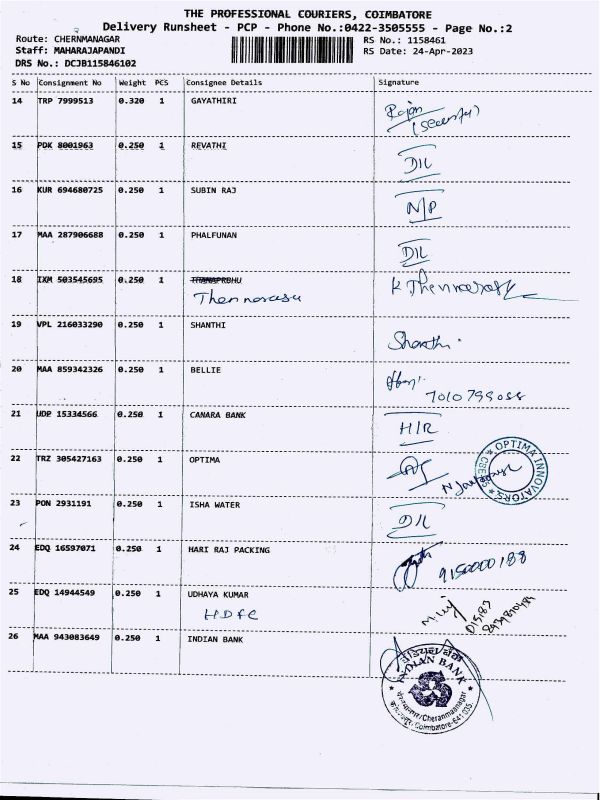 THE PROFESSIONAL COURIERS, COIMBATORE
Delivery Runsheet - PCP - Phone No.:0422-3505555 - Page No.:2
Route: CHERNMANAGAR RS No.: 1158461
Staff: MAHARAJAPANDI RS Date: 24-Apr-2023
DRS No.: DCJB115846102
S No Consignment No Weight PCS Consignee Details Signature
14 TRP 7999513 0.320 1 GAYATHIRI Rajan
(Security)
15 PDK 8001963 0.250 1 REVATHI DIL
16 KUR 694680725 0.250 1 SUBIN RAJ N/P
17 MAA 287906688 0.250 1 PHALFUNAN DIL
18 IXM 503545695 0.250 1 K Thennarasu
Thennarasu
19 VPL 216033290 0.250 1 SHANTHI Shanthi.
20 MAA 859342326 0.250 1 BELLIE
7010799088
21 UDP 15334566 0.250 1 CANARA BANK H/R
22 TRZ 305427163 0.250 1 OPTIMA
OPTIMA INNOVATORS
CBE
23 PON 2931191 0.250 1 ISHA WATER DIL
24 EDQ 16597071 0.250 1 HARI RAJ PACKING 9150000188
25 EDQ 14944549 0.250 1 UDHAYA KUMAR
HDFC D15187
26 MAA 943083649 0.250 1 INDIAN BANK
इंडियन बैंक
INDIAN BANK
/Cheranmaanagar
/Coimbatore-641035.